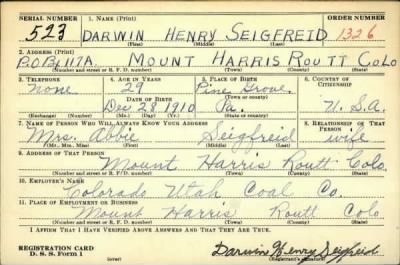 SERIAL NUMBER 1. NAME (Print) ORDER NUMBER
523 DARWIN HENRY SEIGFREID 1326
(First) (Middle) (Last)
2. ADDRESS (Print)
P.O. Bx 117A. MOUNT HARRIS ROUTT COLO
(Number and street or R. F. D. number) (Town) (County) (State)
3. TELEPHONE 4. AGE IN YEARS 5. PLACE OF BIRTH 6. COUNTRY OF CITIZENSHIP
None 29 Pine Grove
DATE OF BIRTH (Town or county)
Dec 28 1910 Pa. U.S.A.
(Exchange) (Number) (Mo.) (Day) (Yr.) (State or country)
7. NAME OF PERSON WHO WILL ALWAYS KNOW YOUR ADDRESS 8. RELATIONSHIP OF THAT PERSON
Mrs. Abbie Seigfreid wife
(Mr., Mrs., Miss) (First) (Middle) (Last)
9. ADDRESS OF THAT PERSON
Mount Harris Routt Colo.
(Number and street or R. F. D. number) (Town) (County) (State)
10. EMPLOYER'S NAME
Colorado Utah Coal Co.
11. PLACE OF EMPLOYMENT OR BUSINESS
Mount Harris Routt Colo
(Number and street or R. F. D. number) (Town) (County) (State)
I AFFIRM THAT I HAVE VERIFIED ABOVE ANSWERS AND THAT THEY ARE TRUE.
REGISTRATION CARD
D. S. S. Form 1 (over) Darwin Henry Seigfreid
(Registrant's signature)